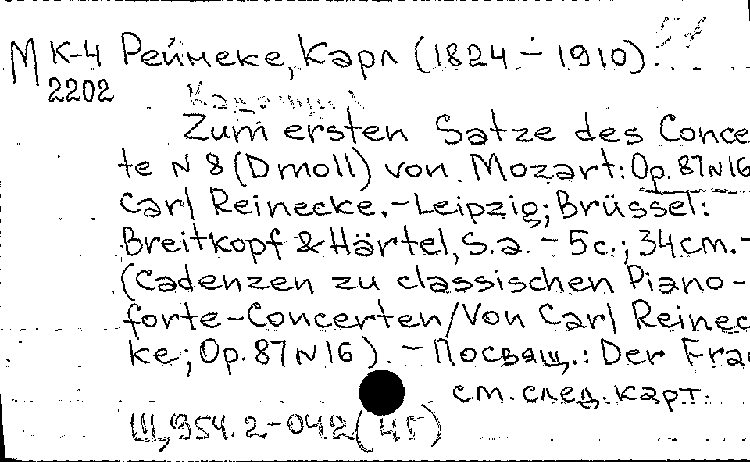 М К-4 Рейнеке, Карл (1824 – 1910).
2202
Zum ersten Satze des Conce
te N 8 (D moll) von Mozart: Op. 87 N 16
Carl Reinecke. - Leipzig; Brüssel:
Breitkopf & Härtel, S.a. - 5 c.; 34 cm. -
(Cadenzen zu classischen Piano-
forte-Concerten/Von Carl Reinec
ke; Op. 87 N 16). - Посвящ.: Der Frau
см. след. карт.
Щ,954.2-042(4Г)